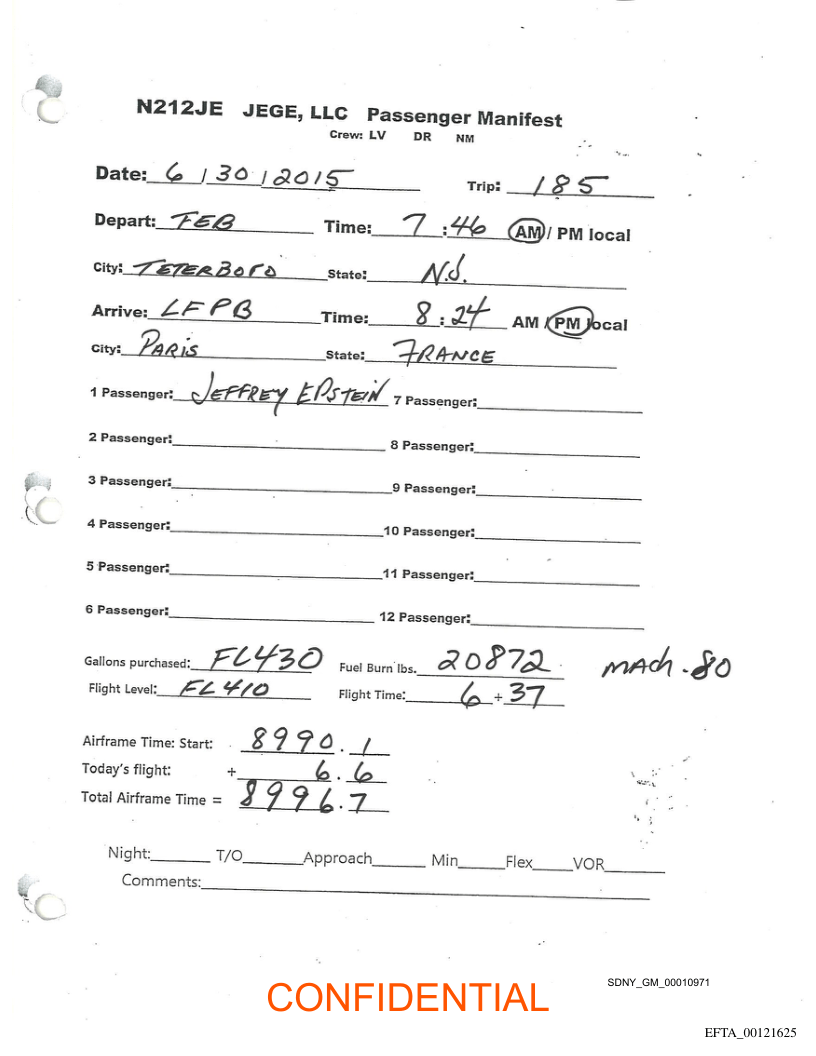 N212JE JEGE, LLC Passenger Manifest
Crew: LV DR NM
Date: 6 / 30 / 2015 Trip: 185
Depart: TEB Time: 7 : 46 AM / PM local
City: TETERBORO State: N.J.
Arrive: LFPB Time: 8 : 24 AM / PM local
City: PARIS State: FRANCE
1 Passenger: JEFFREY EPSTEIN 7 Passenger:
2 Passenger: 8 Passenger:
3 Passenger: 9 Passenger:
4 Passenger: 10 Passenger:
5 Passenger: 11 Passenger:
6 Passenger: 12 Passenger:
Gallons purchased: FL430 Fuel Burn lbs. 20872 MACh .80
Flight Level: FL410 Flight Time: 6 + 37
Airframe Time: Start: 8990.1
Today's flight: + 6.6
Total Airframe Time = 8996.7
Night: T/O Approach Min Flex VOR
Comments:
SDNY_GM_00010971
CONFIDENTIAL
EFTA_00121625